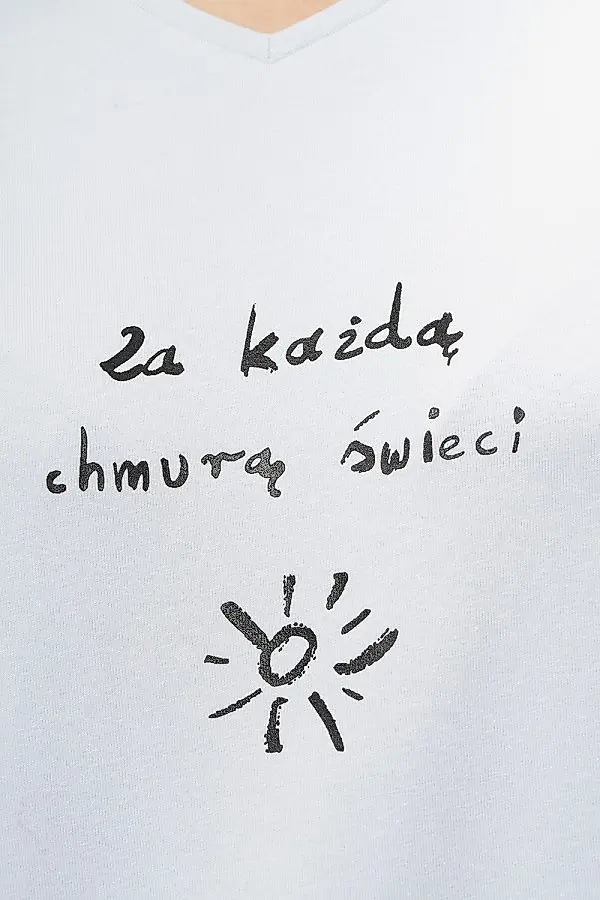 Za każdą
chmurą świeci